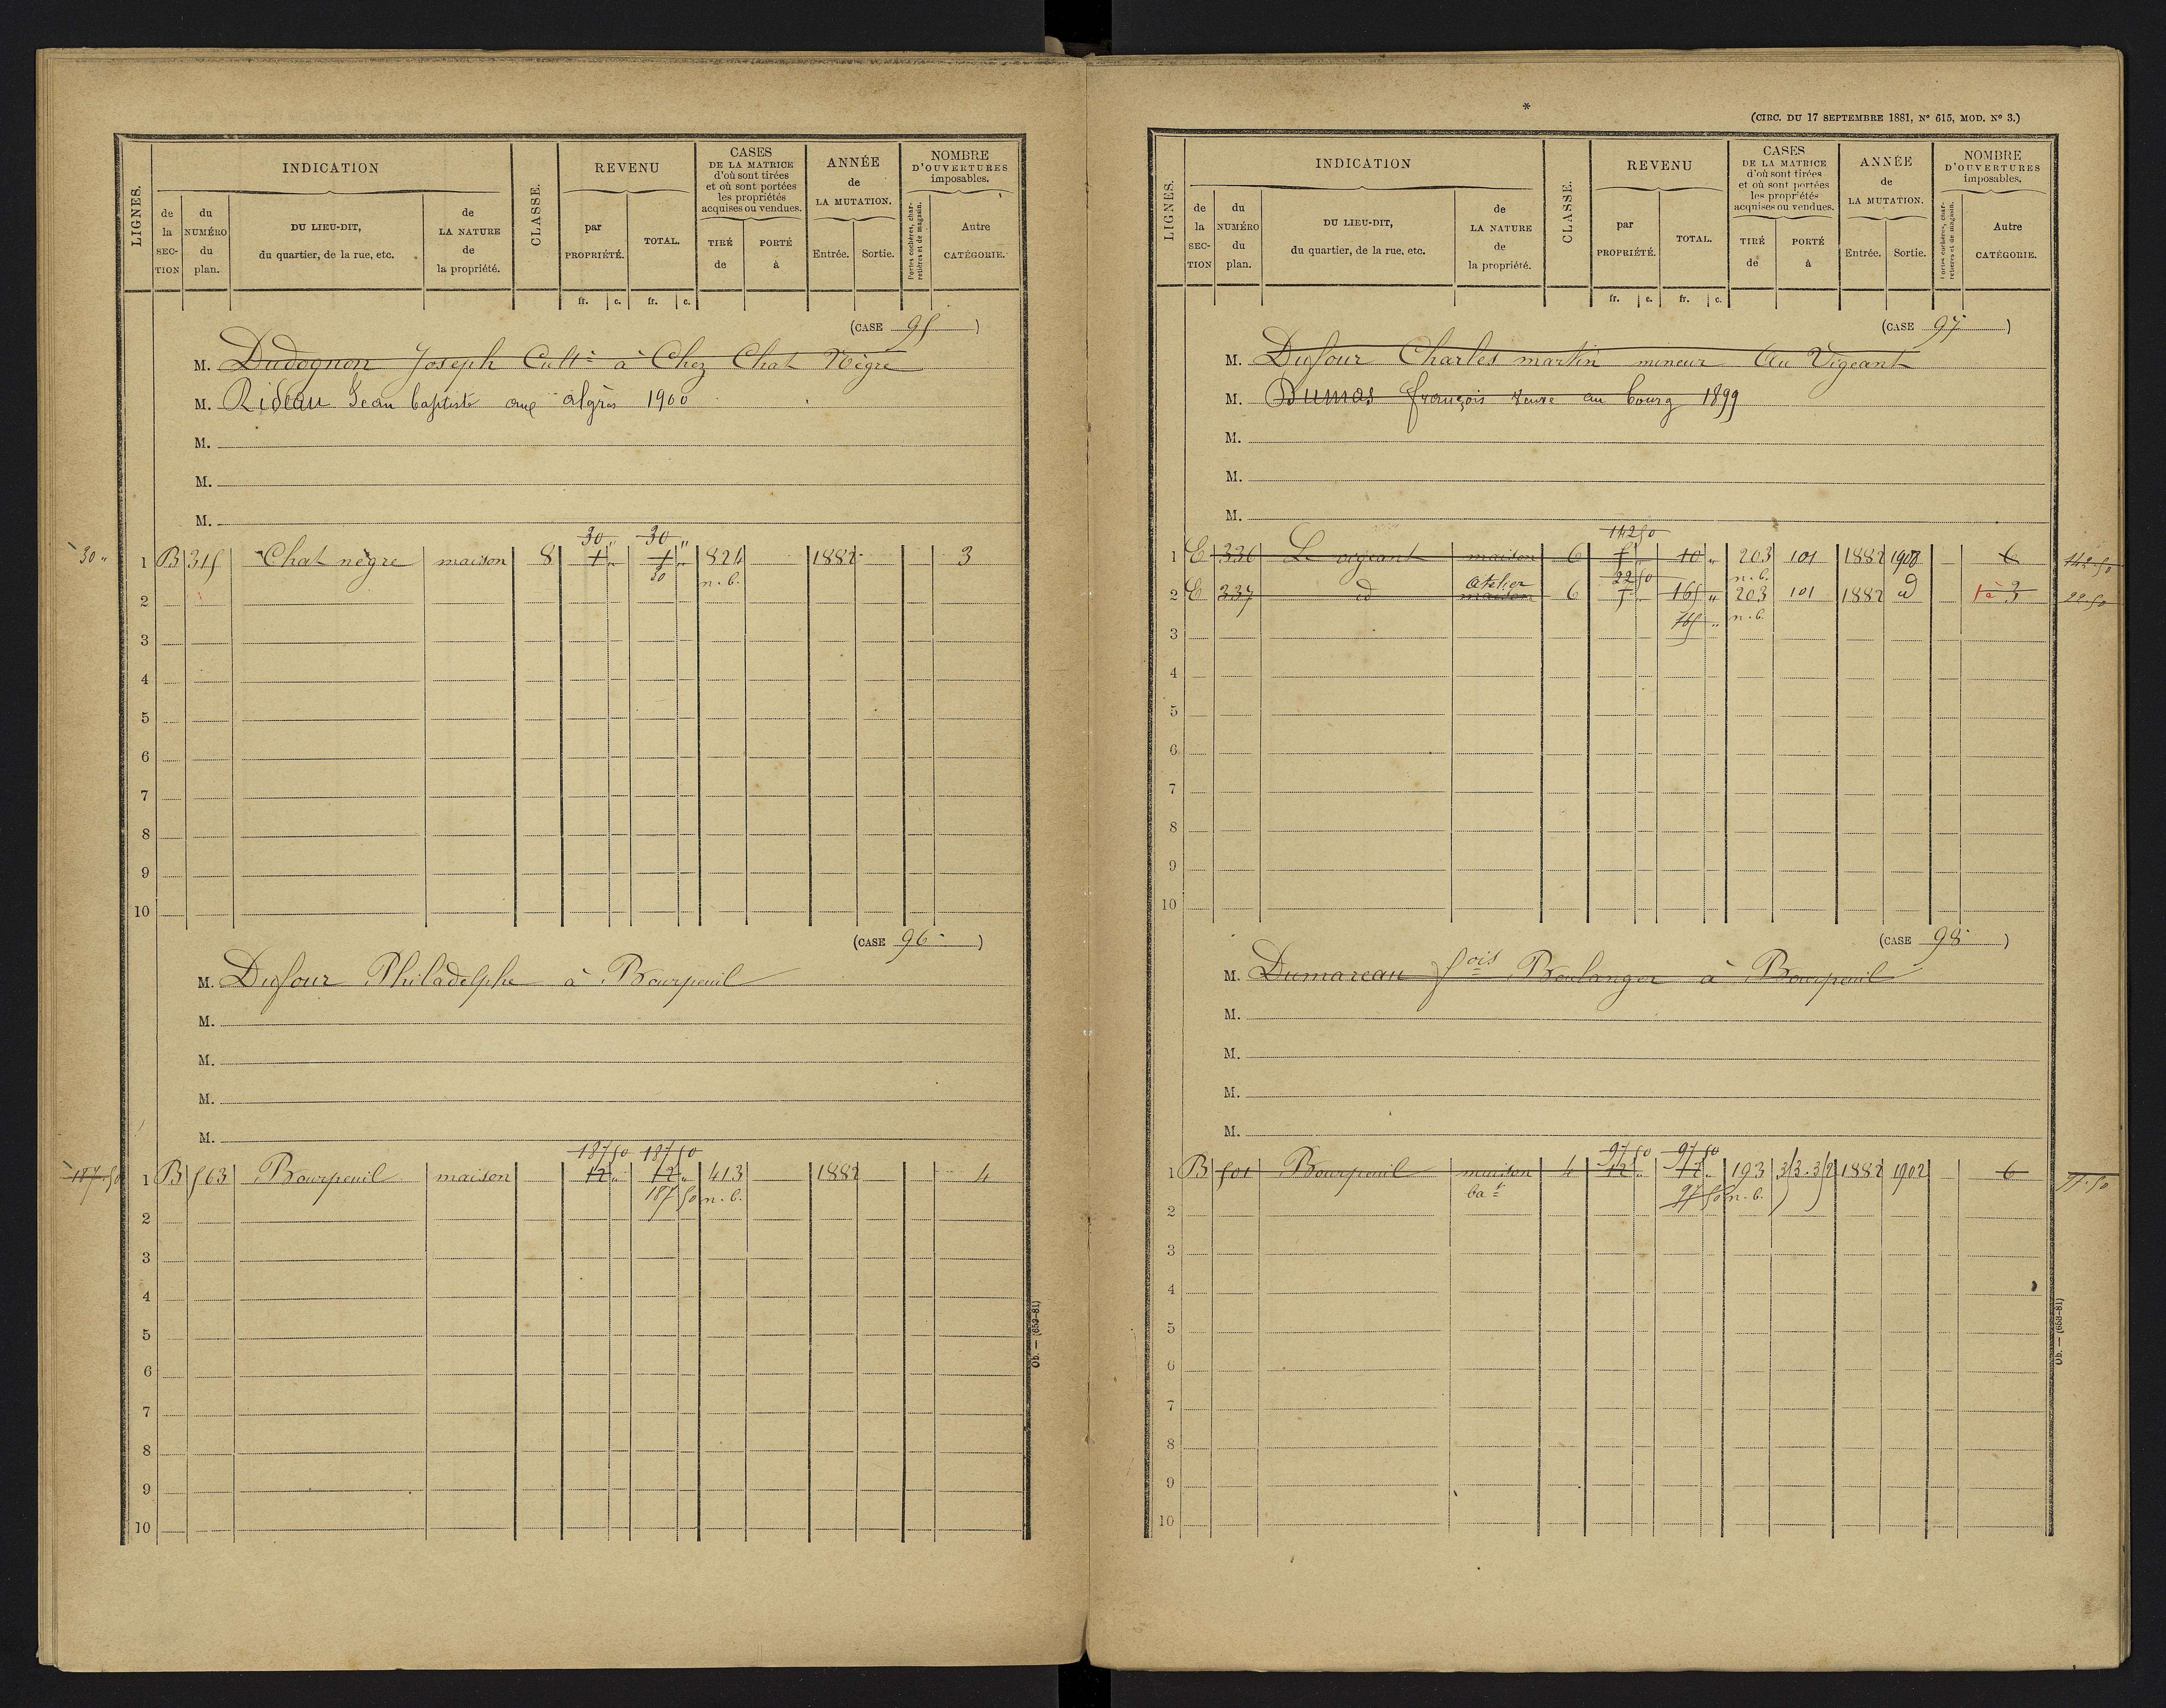 LIGNES.
INDICATION
CLASSE.
REVENU
CASES
DE LA MATRICE
d'où sont tirées
et où sont portées
les propriétés
acquises ou vendues.
ANNÉE
de
LA MUTATION.
NOMBRE
D'OUVERTURES
imposables.
de la SEC-TION
du NUMÉRO du plan.
DU LIEU-DIT,
du quartier, de la rue, etc.
de LA NATURE de la propriété.
par PROPRIÉTÉ.
TOTAL.
TIRÉ de
PORTÉ à
Entrée.
Sortie.
Portes cochères, char-
retières et de magasin.
Autre CATÉGORIE.
fr. c. fr. c.
(CASE 95 )
M. Dudognon Joseph Cultr à Chez Chat Nègre
M. Rideau Jean baptiste 1900
M.
M.
M.
30 " 30 "
30 " 1 B 315 Chat nègre maison 8 1 " 1 " 824 1882 3
30 n.b.
2
3
4
5
6
7
8
9
10
(CASE 96 )
M. Dufour Philadelphe à Bourpeuil
M.
M.
M.
M.
187 50 187 50
187.50 1 B 563 Bourpeuil maison 12 " 12 " 413 1882 4
187 50 n.b.
2
3
4
5
6
7
8
9
10
Ob. — (653-81)
*
(CIRC. DU 17 SEPTEMBRE 1881, N° 615, MOD. N° 3.)
LIGNES.
INDICATION
CLASSE.
REVENU
CASES
DE LA MATRICE
d'où sont tirées
et où sont portées
les propriétés
acquises ou vendues.
ANNÉE
de
LA MUTATION.
NOMBRE
D'OUVERTURES
imposables.
de la SEC-TION
du NUMÉRO du plan.
DU LIEU-DIT,
du quartier, de la rue, etc.
de LA NATURE de la propriété.
par PROPRIÉTÉ.
TOTAL.
TIRÉ de
PORTÉ à
Entrée.
Sortie.
Portes cochères, char-
retières et de magasin.
Autre CATÉGORIE.
fr. c. fr. c.
(CASE 97 )
M. Dufour Charles martin mineur Au Vigeant
M. Dumas françois au bourg 1899
M.
M.
M.
142 50
1 E 336 Le vigeant maison 6 5 " 10 " 203 101 1882 6 142.50
22 50 n.b.
atelier
2 E 337 id maison 6 5 " 165 " 203 101 1882 id 1 à 3 22.50
165 " n.b.
3
4
5
6
7
8
9
10
(CASE 98 )
M. Dumareau fois Boulanger à Bourpeuil
M.
M.
M.
M.
97 50 97 50
1 B 501 Bourpeuil maison 4 12 " 12 " 193 313.312 1882 1902 6 97.50
bat 97 50 n.b.
2
3
4
5
6
7
8
9
10
Ob. — (653-81)